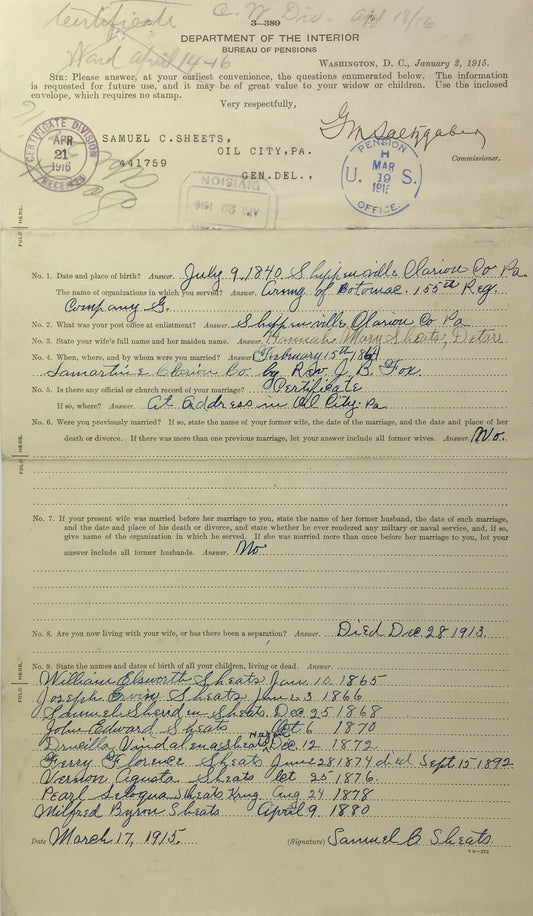 Certificate C. W. Div. Apl 18/16
3—389
DEPARTMENT OF THE INTERIOR
BUREAU OF PENSIONS
Ward April 14-16
WASHINGTON, D. C., January 2, 1915.
SIR: Please answer, at your earliest convenience, the questions enumerated below. The information
is requested for future use, and it may be of great value to your widow or children. Use the inclosed
envelope, which requires no stamp.
Very respectfully,
G M Saltzgaber
Commissioner.
CERTIFICATE DIVISION
APR
21
1916
RECEIVED
SAMUEL C. SHEETS,
OIL CITY, PA.
441759
GEN. DEL.,
PENSION
H
MAR
U. 19 S.
1915
OFFICE.
DIVISION
APR 22 1916
FOLD HERE.
No. 1. Date and place of birth? Answer. July 9. 1840. Shippenville Clarion Co Pa.
The name of organizations in which you served? Answer. Army of Potomac. 155th Reg.
Company G.
No. 2. What was your post office at enlistment? Answer. Shippenville Clarion Co Pa
No. 3. State your wife's full name and her maiden name. Answer. Hannah Mary Sheats, Detar
No. 4. When, where, and by whom were you married? Answer. February 15th 1864
Lamartine Clarion Co by Rev J. B. Fox.
No. 5. Is there any official or church record of your marriage? Certificate
If so, where? Answer. At Address in Oil City. Pa
No. 6. Were you previously married? If so, state the name of your former wife, the date of the marriage, and the date and place of her
death or divorce. If there was more than one previous marriage, let your answer include all former wives. Answer. No.
FOLD HERE.
No. 7. If your present wife was married before her marriage to you, state the name of her former husband, the date of such marriage,
and the date and place of his death or divorce, and state whether he ever rendered any military or naval service, and, if so,
give name of the organization in which he served. If she was married more than once before her marriage to you, let your
answer include all former husbands. Answer. No
No. 8. Are you now living with your wife, or has there been a separation? Answer. Died Dec 28 1913.
No. 9. State the names and dates of birth of all your children, living or dead. Answer.
FOLD HERE.
William Elsworth Sheats Jan. 10. 1865
Joseph Ervin Sheats June 3 1866
Samuel Sheridin Sheats. Dec 25 1868
John Edward Sheats Oct 6 1870
Drucilla Vindalena Sheats Dec. 12 1872
Ferry Florence Sheats June 28 1874 died Sept. 15 1892
Vernon Agusta Sheats Oct 25 1876.
Pearl Sheats King Aug 24 1878
Milfred Byron Sheats April 9. 1880
Date March 17, 1915. (Signature) Samuel C. Sheats.